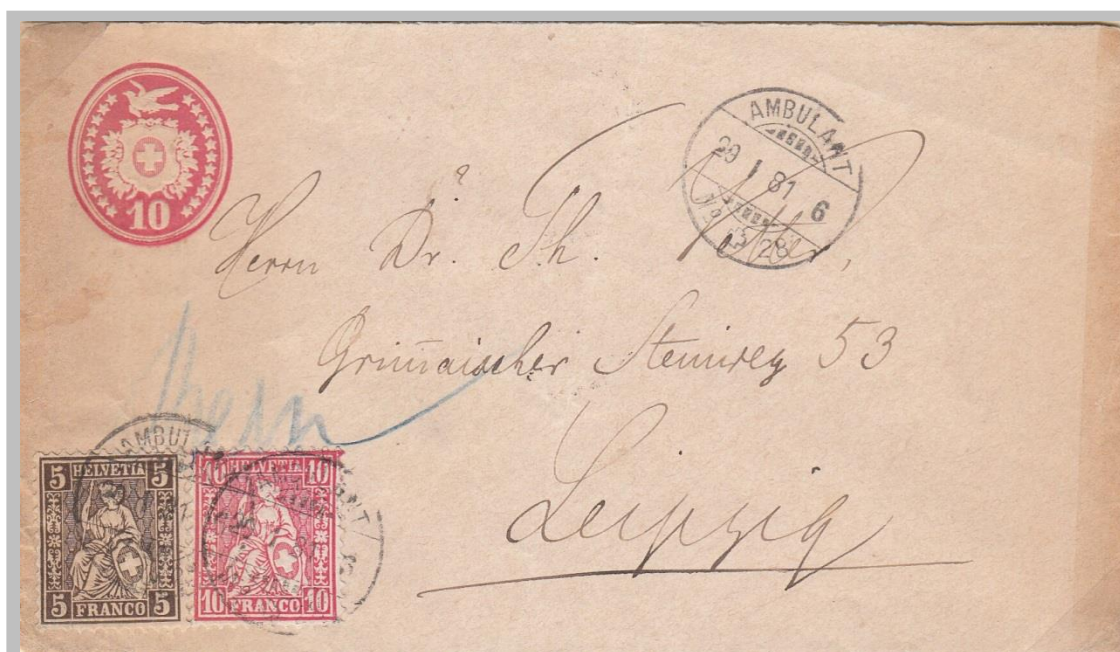 10
AMBULANT
29 I 81 6
No 28
Herrn Dr. Th.
Grimmaischer Steinweg 53
Leipzig
Bern
AMBULANT
5 HELVETIA 5
5 FRANCO 5
10 HELVETIA 10
10 FRANCO 10